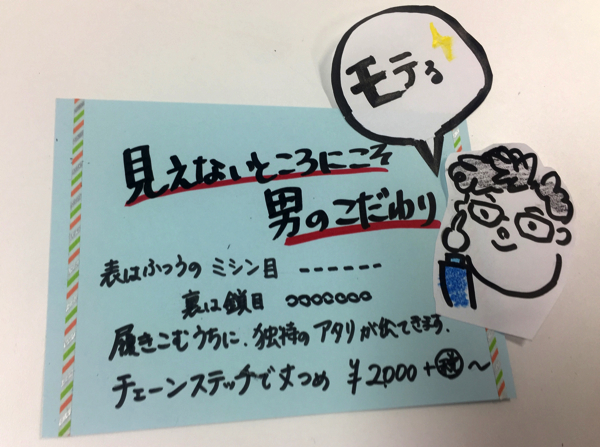 モテる
見えないところにこそ
男のこだわり
表はふつうの ミシン目 ------
裏は鎖目 ooooooo
履きこむうちに、独特のアタリが出てきます.
チェーンステッチで丈つめ ¥2,000+税~